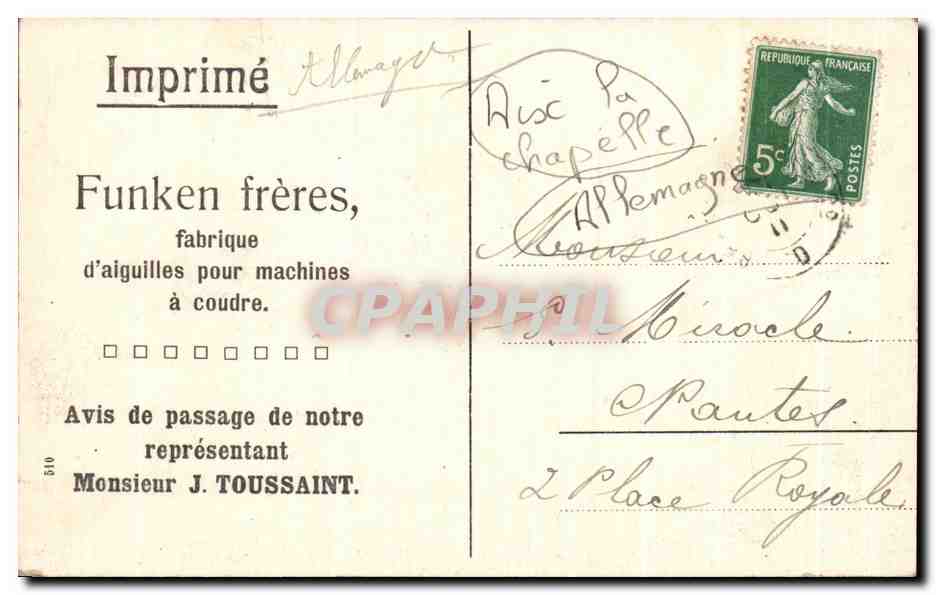 Imprimé
Allemagne
Funken frères,
fabrique
d'aiguilles pour machines
à coudre.
Avis de passage de notre
représentant
Monsieur J. TOUSSAINT.
510
Aix la
chapelle
Allemagne
REPUBLIQUE FRANÇAISE
5c
POSTES
Monsieur
Miracle
Nantes.
2 Place Royale
CPAPHIL